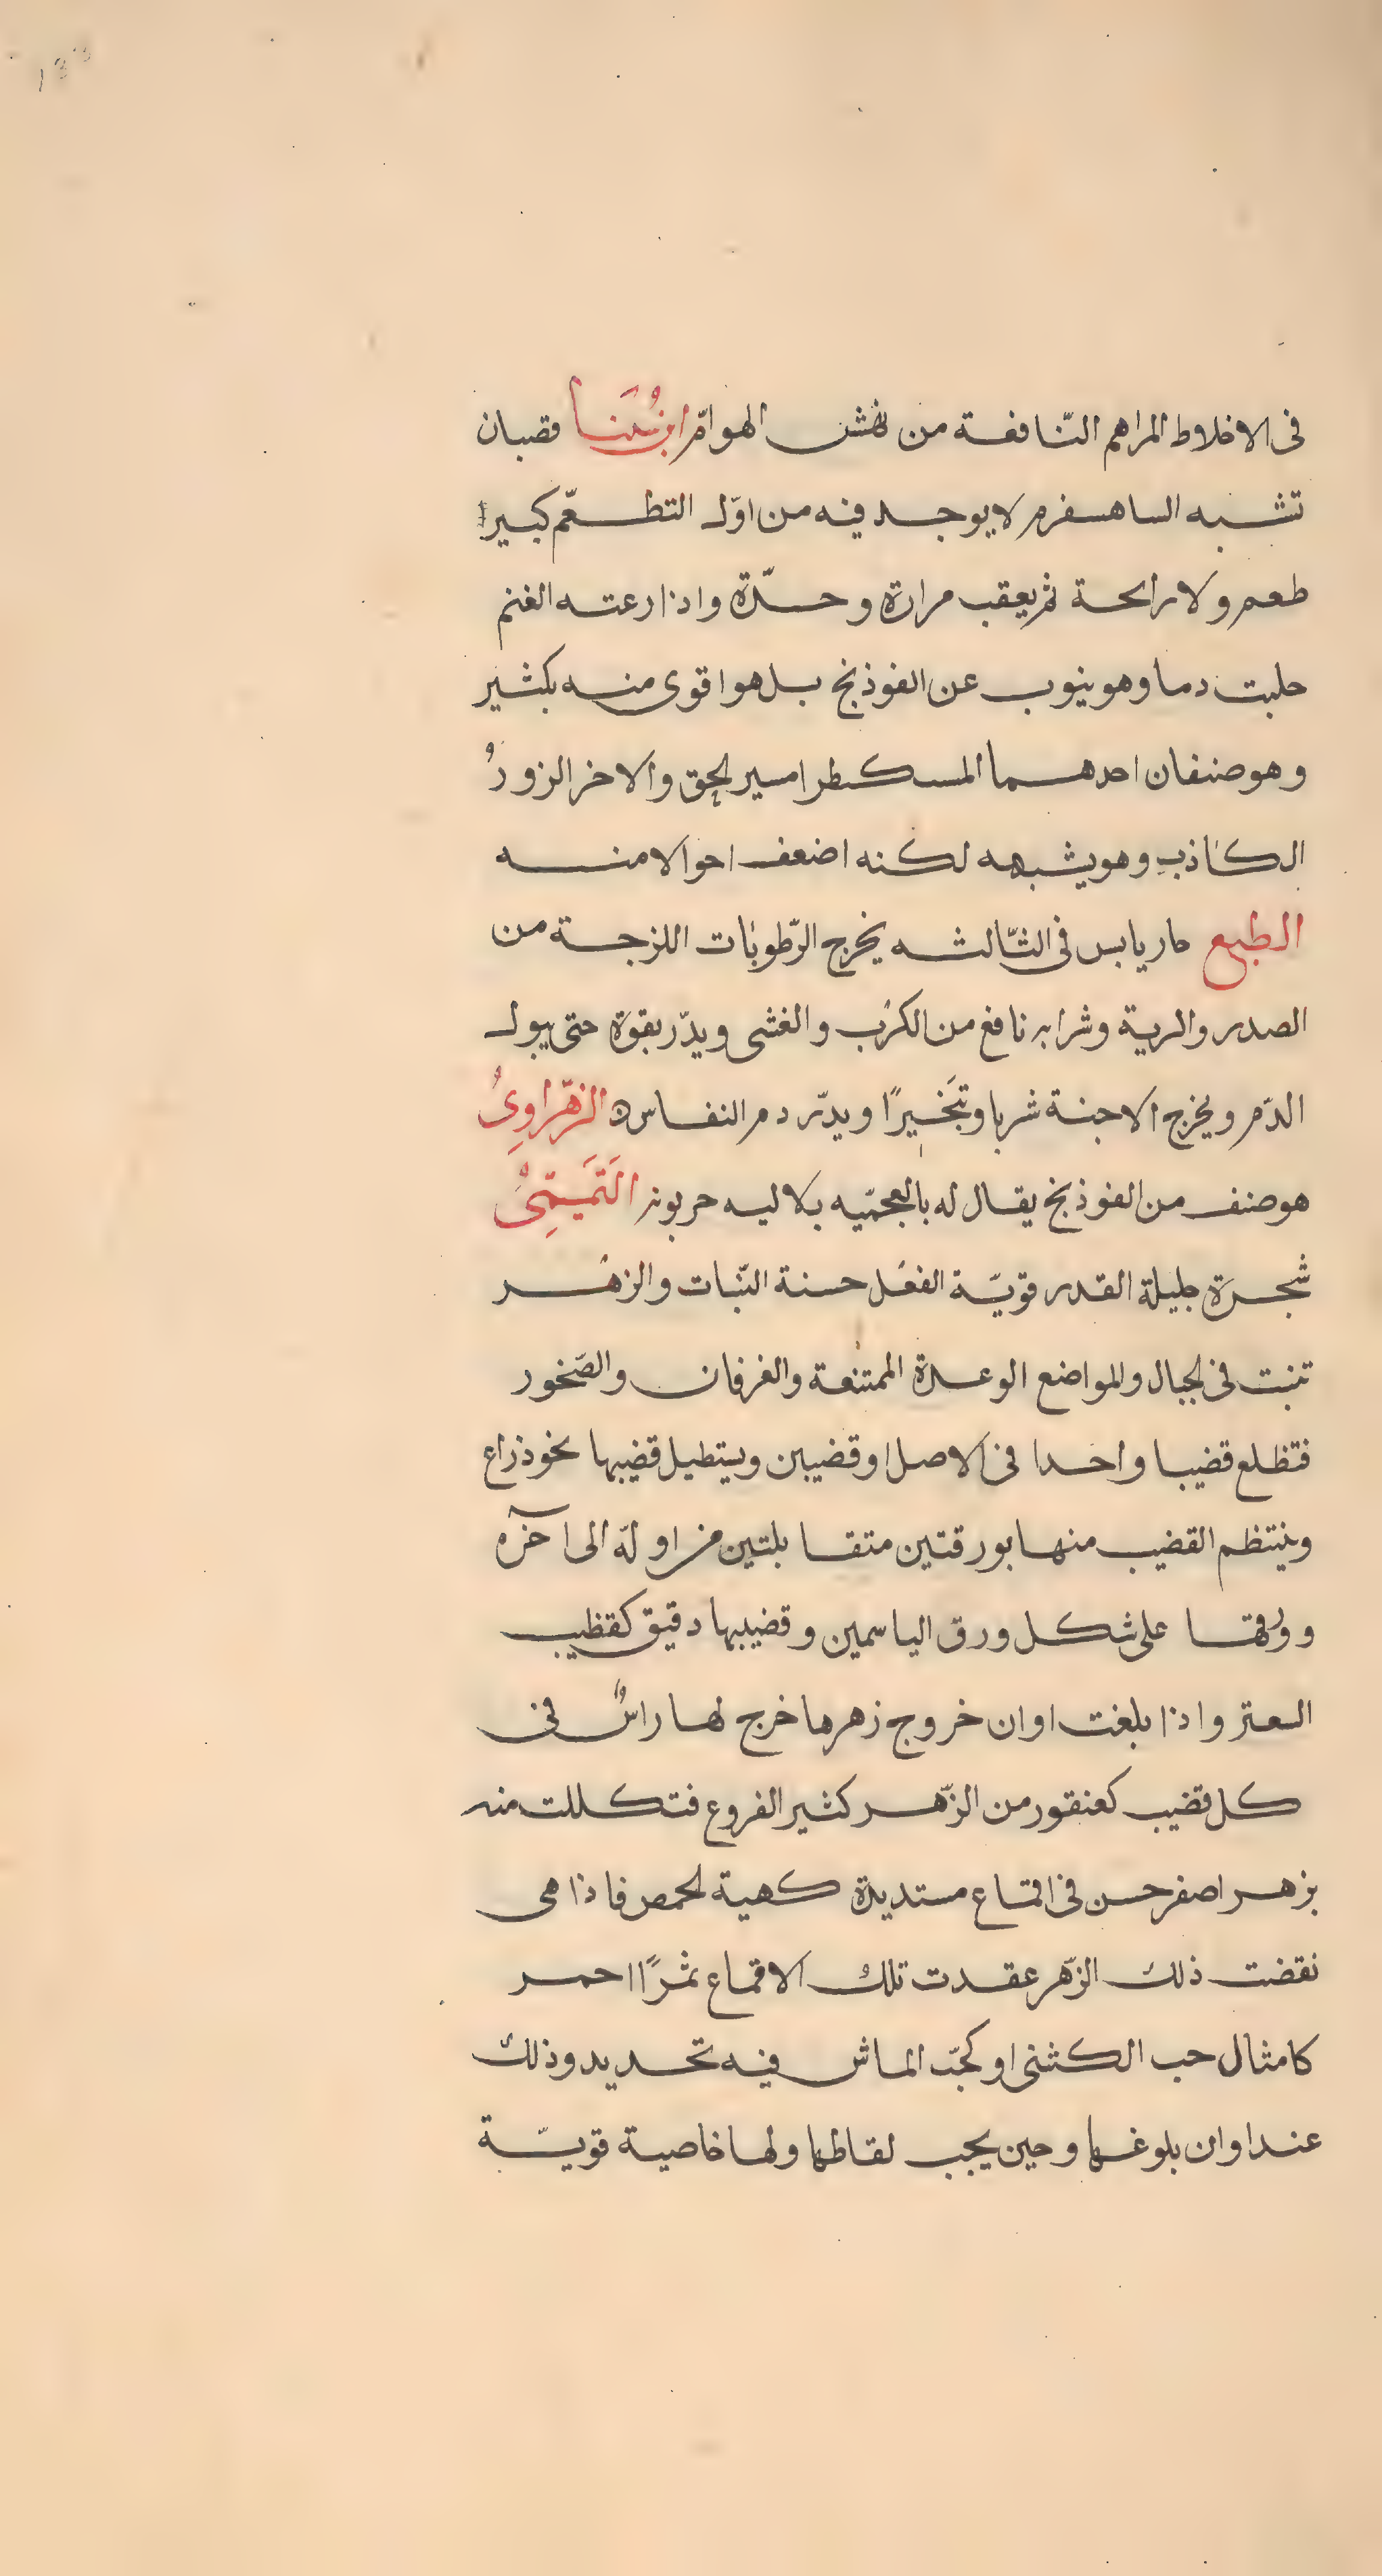 133
فى الاخلاط المراهم النّافعة من نهش الهوامّ ابن سُيَنا قضبان
تشبه الساهسفرم لا يوجد فيه من اوّل التطعّم كبيرا
طعم ولا رايحة ثم يعقب مرارة وحدّة واذا رعته الغنم
حلبت دما وهو ينوب عن الفوذنج بل هو اقوى منه بكثير
وهو صنفان احدهما المسكطرامسير لحق والاخر الزورُ
الكاذب وهو يشبهه لكنه اضعف احوالا منه
الطبع حار يابس فى الثّالثه يخرج الرّطوبات اللزجة من
الصدر والرية وشرابه نافع من الكرب والغشى ويدّر بقوة حتى يبول
الدّم ويخرج الاجنة شربا وتبَخيرًا ويدّر دم النفاس ه الزهّراوِىُ
هو صنف من الفوذنخ يقال له بالعجمّيه بلاليه حربونه التَمَيمِىُّ
شجرة جليلة القدر قويّة الفعل حسنة النّبات والزهر
تنبت فى لجبال والمواضع الوعدة الممتنعة والغرفان والصّخور
فتظلع قضيبا واحدا فى الاصل او قضيبين ويستطيل قضيبها نخو ذراع
وينتظم القضيب منها بورقتين متقا بلتين من اولّه الى آخره
وورقها على شكل ورق الياسمين وقضيبها دقيق كقظيب
السعتر واذا بلغت اوان خروج زهرها خرج لها راسٌ فى
كل قضيب كعنقور من الزّهر كثير الفروع فتكللت منه
بزهر اصفر حسن فى اقماع مستديرة كهية لحمص فاذا هى
نقضت ذلك الزّهر عقدت تلك الاقماع ثمرًا احمر
كامثال حب الكشنى او كحبّ الماش فيه تحديد وذلك
عند اوان بلوغها وحين يجب لقاطها ولها خاصية قويّة